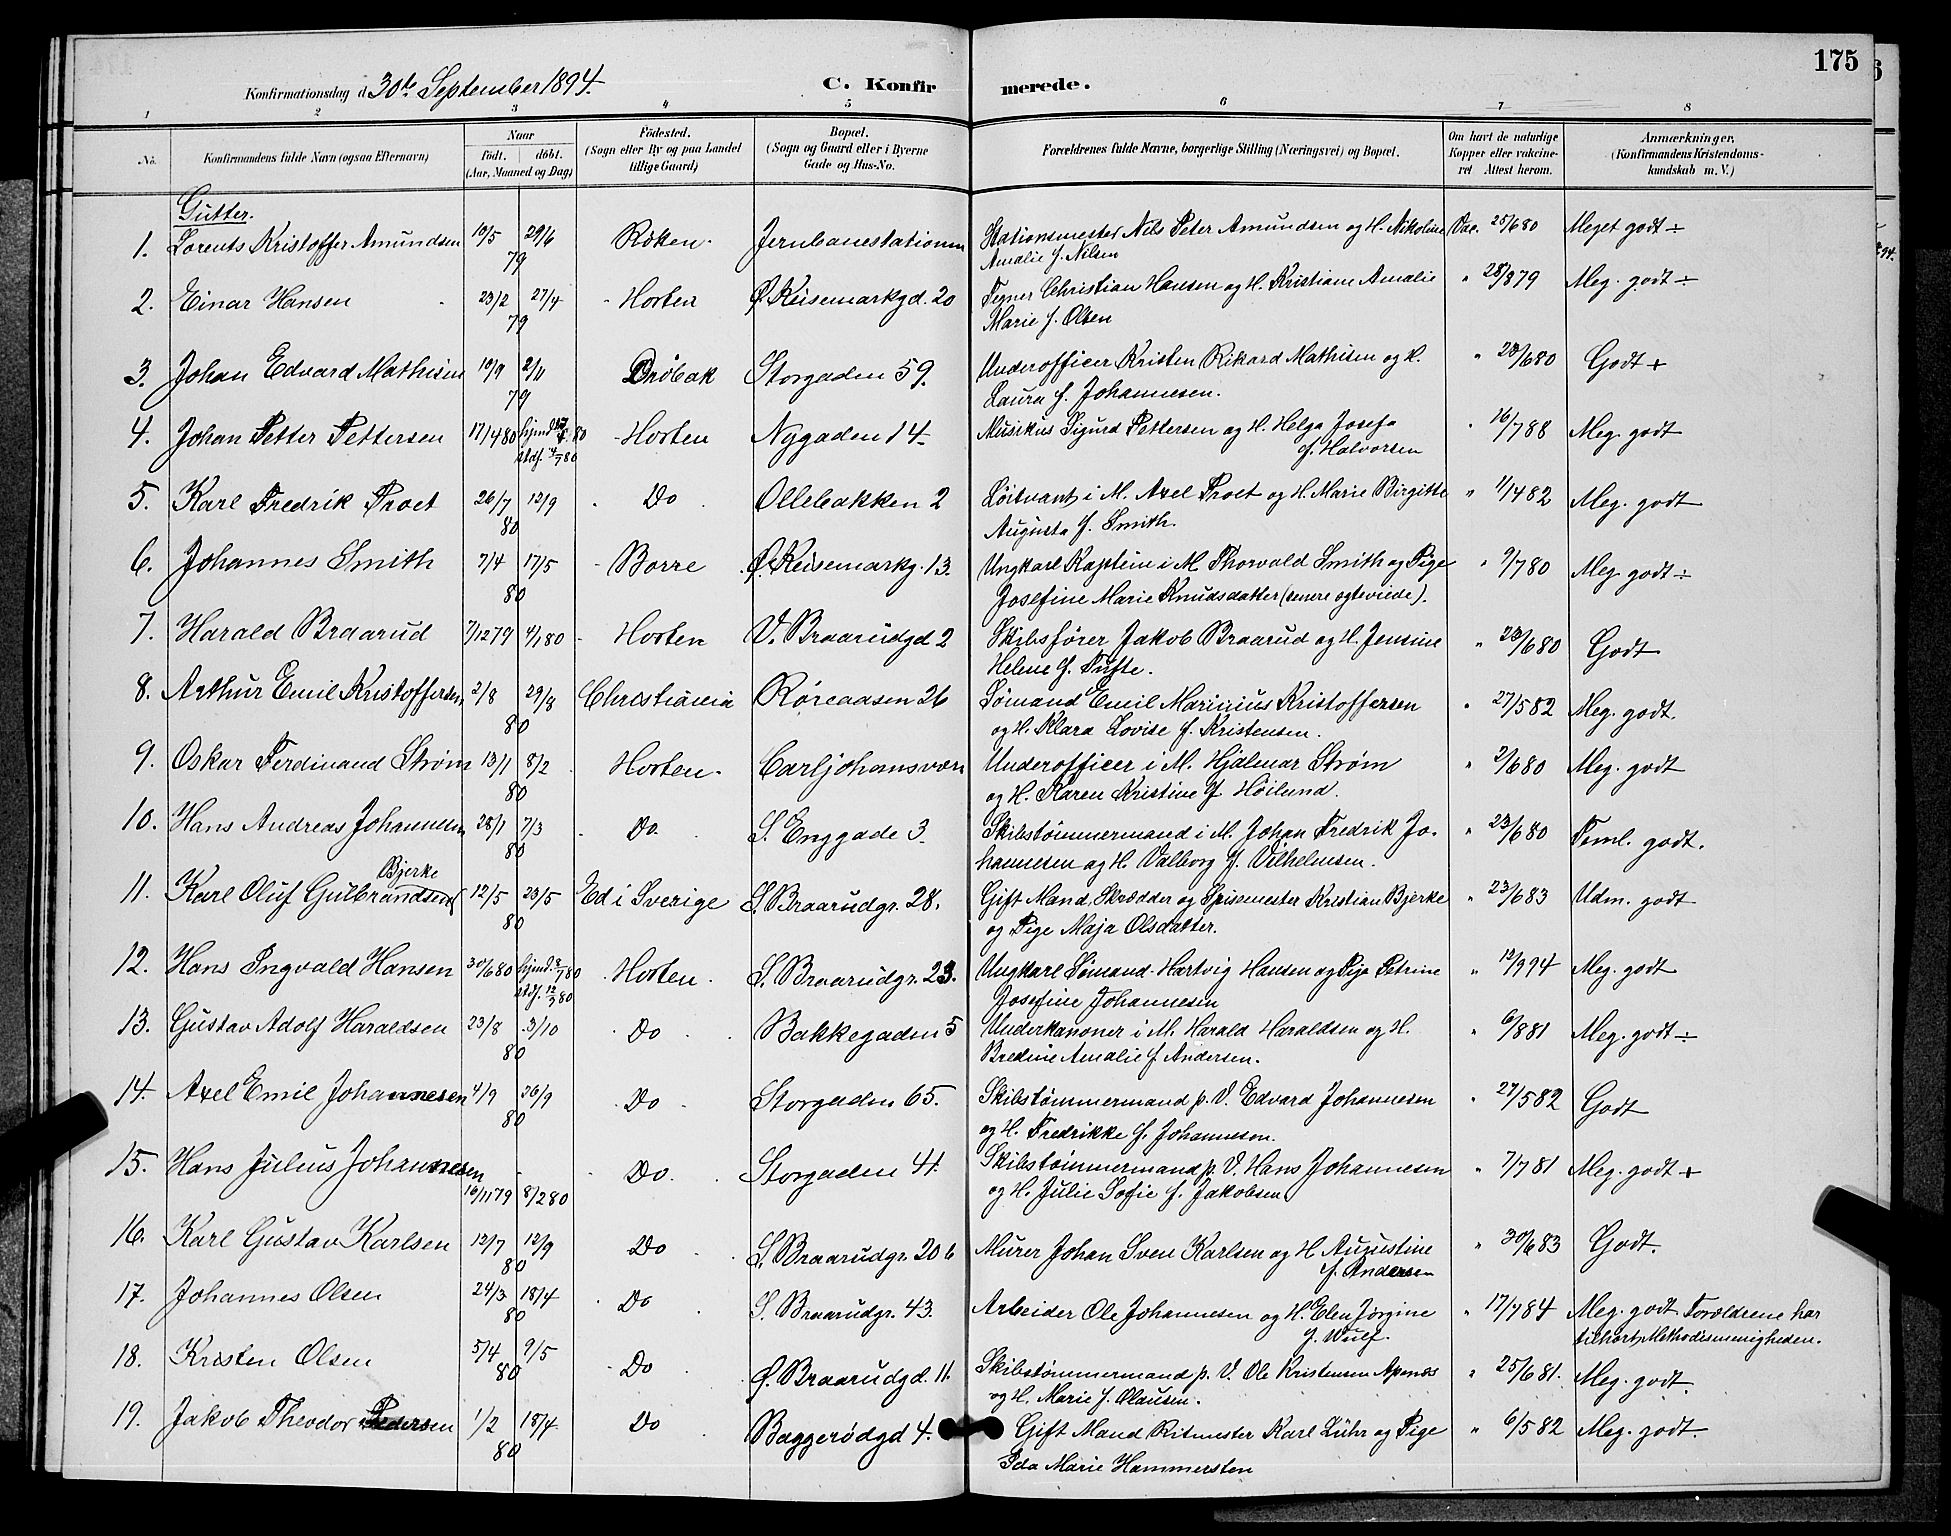 175
Konfirmationsdag d 30te September 1894.
C. Konfirmerede.
1 2 3 4 5 6 7 8
No. Konfirmandens fulde Navn (ogsaa Efternavn) Naar født. døbt. (Aar, Maaned og Dag) Fødested. (Sogn eller By og paa Landet tillige Gaard) Bopæl. (Sogn og Gaard eller i Byerne Gade og Hus-No. Forældrenes fulde Navne, borgerlige Stilling (Næringsvei) og Bopæl. Om havt de naturlige Kopper eller vakcineret Attest herom. Anmærkninger, (Konfirmandens Kristendomskundskab m. V.)
Gutter.
1. Lorents Kristoffer Amundsen 10/5 29/6 79 Røken. Jernbanestationen Stationsmester Nils Peter Amundsen og H. Nikoline Vac. 25/6 80 Meget godt ÷
Amalie f. Nilsen
2. Einar Hansen 23/2 27/4 79 Horten Ø. Keisemarkgd. 20 Tegner Christian Hansen og H. Kristiane Amalie " 28/8 79 Meg. godt ÷
Marie f. Olsen
3. Johan Edvard Mathisen 10/9 2/11 79 Drøbak Storgaden 59. Underofficer Kristen Rikard Mathisen og H. " 28/6 80 Godt +
Laura f. Johannesen.
4. Johan Petter Pettersen 17/4 80 hjemd. 80 Horten Nygaden 14. Musikus Sigurd Pettersen og H. Helga Josefa " 16/7 88 Meg. godt
stdf. 4/7 80 f. Halvorsen
5. Karl Fredrik Proet 26/7 12/9 80 Do Ollebakken 2 Løitnant i M. Axel Proet og H. Marie Birgitte " 11/4 82 Meg. godt
Augusta f. Smith.
6. Johannes Smith 7/4 17/5 80 Borre Ø. Keisemarkg. 13. Ungkarl Kaptein i M. Thorvald Smith og Pige " 9/7 80 Meg. godt ÷
Josefine Marie Knudsdatter (senere ægteviede).
7. Harald Braarud 7/12 79 4/1 80 Horten V. Braarudgd 2 Skibsfører Jakob Braarud og H. Jensine " 23/6 80 Godt
Helene f. Tufte.
8. Arthur Emil Kristoffersen 2/8 29/8 80 Christiania Røreaasen 26 Sømand Emil Marinius Kristoffersen " 27/5 82 Meg. godt.
og H. Klara Lovise f. Kristensen.
9. Oskar Ferdinand Strøm 13/1 8/2 80 Horten. Carljohansværn Underofficer i M. Hjalmar Strøm " 2/6 80 Meg. godt
og H. Karen Kristine f. Høilund.
10. Hans Andreas Johannesen 28/1 7/3 80 Do. S. Enggade 3. Skibstømmermand i M. Johan Fredrik Jo- " 23/6 80 Teml. godt.
hannesen og H. Valborg f. Vilhelmsen.
Bjerke
11. Karl Oluf Gulbrandsen 12/5 23/5 80 Ed i Sverige S. Braarudgr. 28. Gift Mand, Skrædder og Spisemester Kristian Bjerke " 23/6 83 Udm. godt
og Pige Maja Olsdatter.
12. Hans Ingvald Hansen 30/6 80 hjemd. 80 Horten. S. Braarudgr. 23. Ungkarl Sømand Hartvig Hansen og Pige Petrine " 12/9 94 Meg. godt
stdf. 80 Josefine Johannesen
13. Gustav Adolf Haraldsen 23/8 3/10 80 Do Bakkegaden 5 Underkanoner i M. Harald Haraldsen og H. " 6/8 81 Meg. godt ÷
Bredine Amalie f. Andersen.
14. Axel Emil Johannesen 4/9 26/9 80 Do Storgaden 65. Skibstømmermand p. V. Edvard Johannesen " 27/5 82 Godt
og H. Fredrikke f. Johannesen.
15. Hans Julius Johannesen 16/11 79 8/2 80 Do. Storgaden 41. Skibstømmermand p. V. Hans Johannesen " 7/7 81 Meg. godt +
og H. Julie Sofie f. Jakobsen
16. Karl Gustav Karlsen 12/7 12/9 80 Do S. Braarudgr. 20 b Murer Johan Sven Karlsen og H Augustine " 30/6 83 Godt.
f. Andersen
17. Johannes Olsen 24/3 18/4 80 Do S. Braarudgr. 43. Arbeider Ole Johannesen og H. Elen Jørgine " 17/7 84 Meg. godt. Forældrene har
f. Wulf. tilhørt Methodismenigheden.
18. Kristen Olsen 5/4 9/5 80 Do Ø. Braarudgd. 11. Skibstømmermand p. V. Ole Kristensen Apenæs " 25/6 81. Meg. godt.
og H. Marie f. Olausen.
19. Jakob Theodor Pedersen 1/2 18/4 80 Do Baggerødgd 4. Gift Mand Ritmester Karl Lühr og Pige " 6/5 82 Meg. godt.
Ida Marie Hammersten